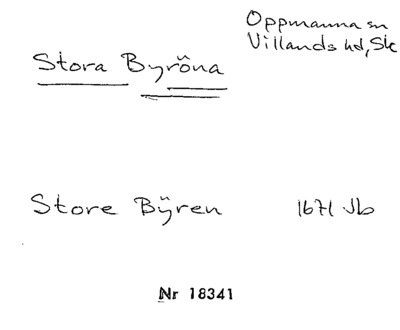 Oppmanna sn
Villands hd, Sk
Stora Byröna
Store Bÿren 1671 Jb
Nr 18341